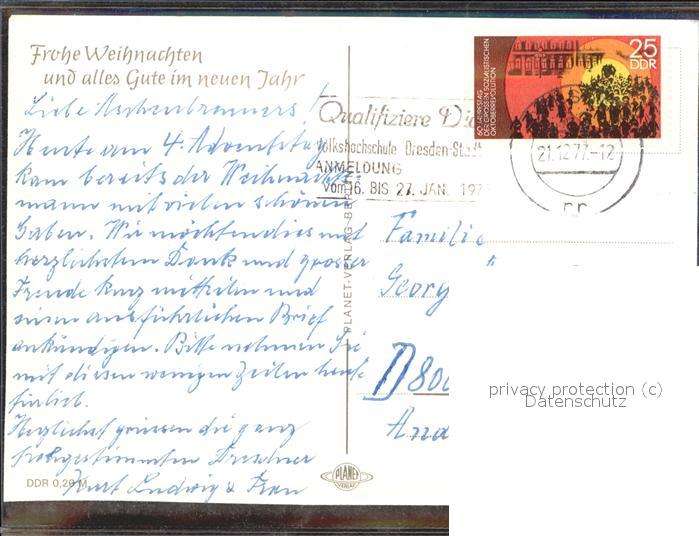 Frohe Weihnachten
und alles Gute im neuen Jahr
Liebe Aschenbrenners!
Heute am 4. Adventstag
kam bereits der Weihnachts-
mann mit vielen schönen
Gaben. Wir möchten dies mit
herzlichstem Dank und grosser
Freude kurz mitteilen und
einen ausführlichen Brief
ankündigen. Bitte nehmen Sie
mit diesen wenigen Zeilen heute
fürlieb.
Herzlichst grüssen die ganz
frohgestimmten Dresdner
Kurt Ludwig & Frau
DDR 0,20 M
PLANET-VERLAG-BERLIN
PLANET
VERLAG
Qualifiziere Di
Volkshochschule Dresden-Stadt
ANMELDUNG
vom 16. BIS 27. JAN. 197
60. JAHRESTAG
DER GROSSEN SOZIALISTISCHEN
OKTOBERREVOLUTION
25
DDR
21.12.77-12
Familie
Georg
D 800
privacy protection (c)
Datenschutz